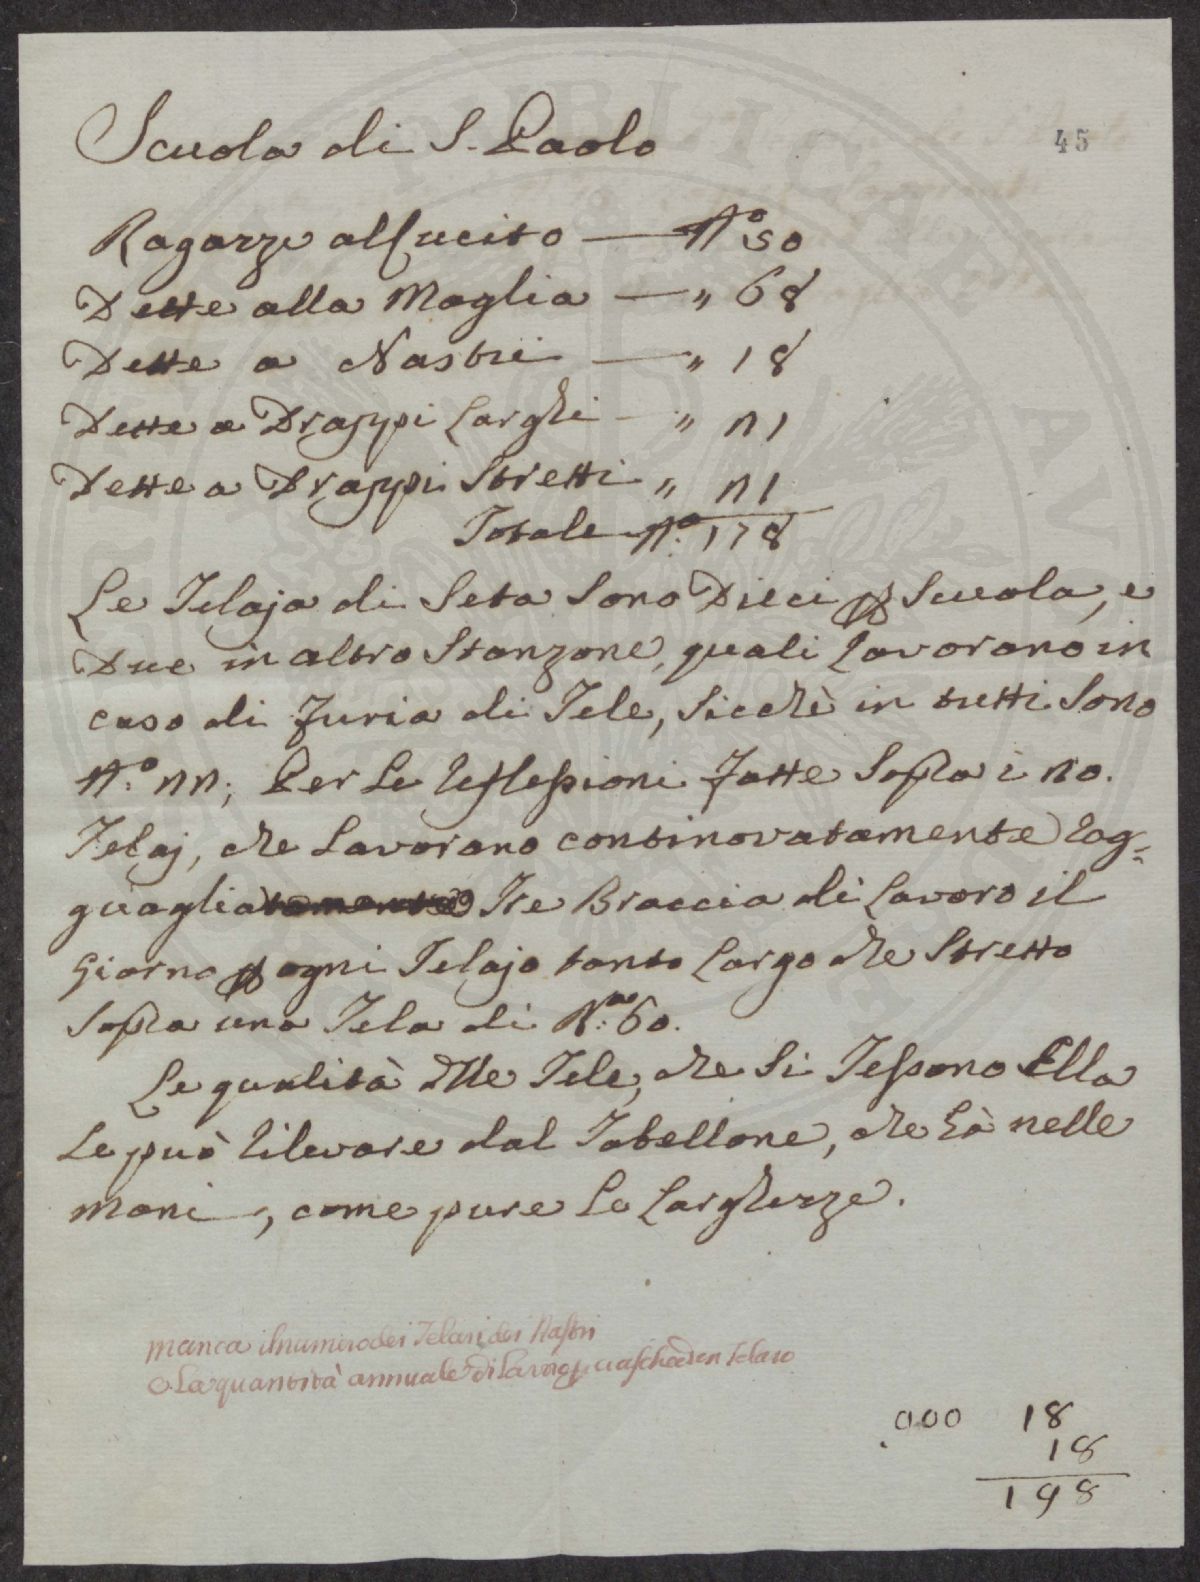 Scuola di S. Paolo
45
Ragazze al Cucito — N.° 50
Dette alla Maglia — „ 68
Dette a Nastri — „ 18
Dette a Drappi Larghi — „ 21
Dette a Drappi Stretti „ 21
Totale N.° 178
Le Telaja di Seta Sono Dieci p Scuola, e
Due in altro Stanzone, quali Lavorano in
caso di furia di Tele, Sicchè in tutti Sono
N.° 22; Per Le reflessioni fatte Sopra i 20.
Telaj, che Lavorano continovatamente rag-
guaglia Tre Braccia di Lavoro il
Giorno p ogni Telajo tanto Largo che Stretto
Sopra una Tela di 60.
Le qualità dlle Tele, che Si Tessono Ella
Le può rilevare dal Tabellone, che hà nelle
mani, come pure Le Larghezze.
manca il numero dei Telari dei Nastri
e La quantità annuale di Lavoro p ciascheden telaro
.000 18
18
198